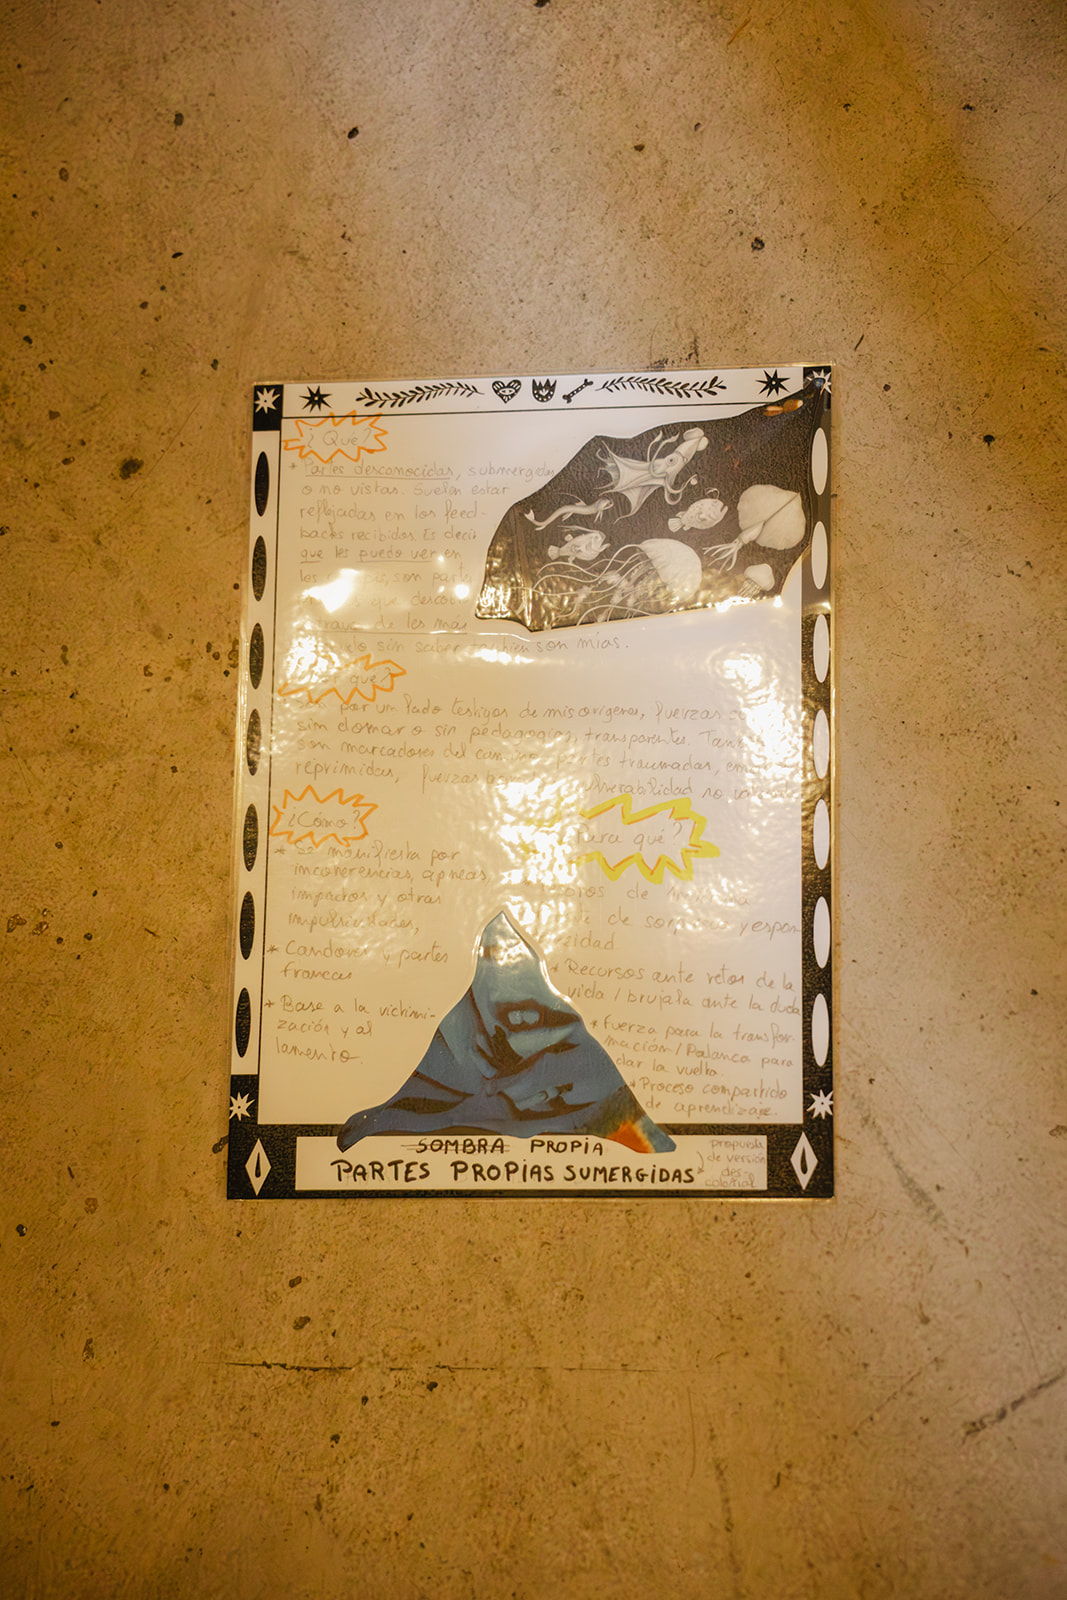 ¿Qué?
* Partes desconocidas, submergidas
o no vistas. Suelen estar
reflejadas en los feed-
backs recibidos. Es decir
que les puedo ver en
son parte
que
de les más
sin saber también son mías.
que?
por un lado testigos de mis orígenes, fuerzas
sin domar o sin pedagogías, transparentes.
son marcadores del camino, partes traumadas,
reprimidas, fuerzas
¿Como?
* Se manifiesta por
incoherencias, apneas,
impactos y otras
impulsividades,
* Candores y partes
francas
* Base a la victimi-
zación y al
lamento.
Para qué?
de
de sorpresa y espon
eidad.
* Recursos ante retos de la
vida / brujula ante la duda
* fuerza para la transfor-
mación / Palanca para
dar la vuelta.
* Proceso compartido
de aprendizaje.
SOMBRA PROPIA
PARTES PROPIAS SUMERGIDAS
propuesta
de versión
des-
colonial